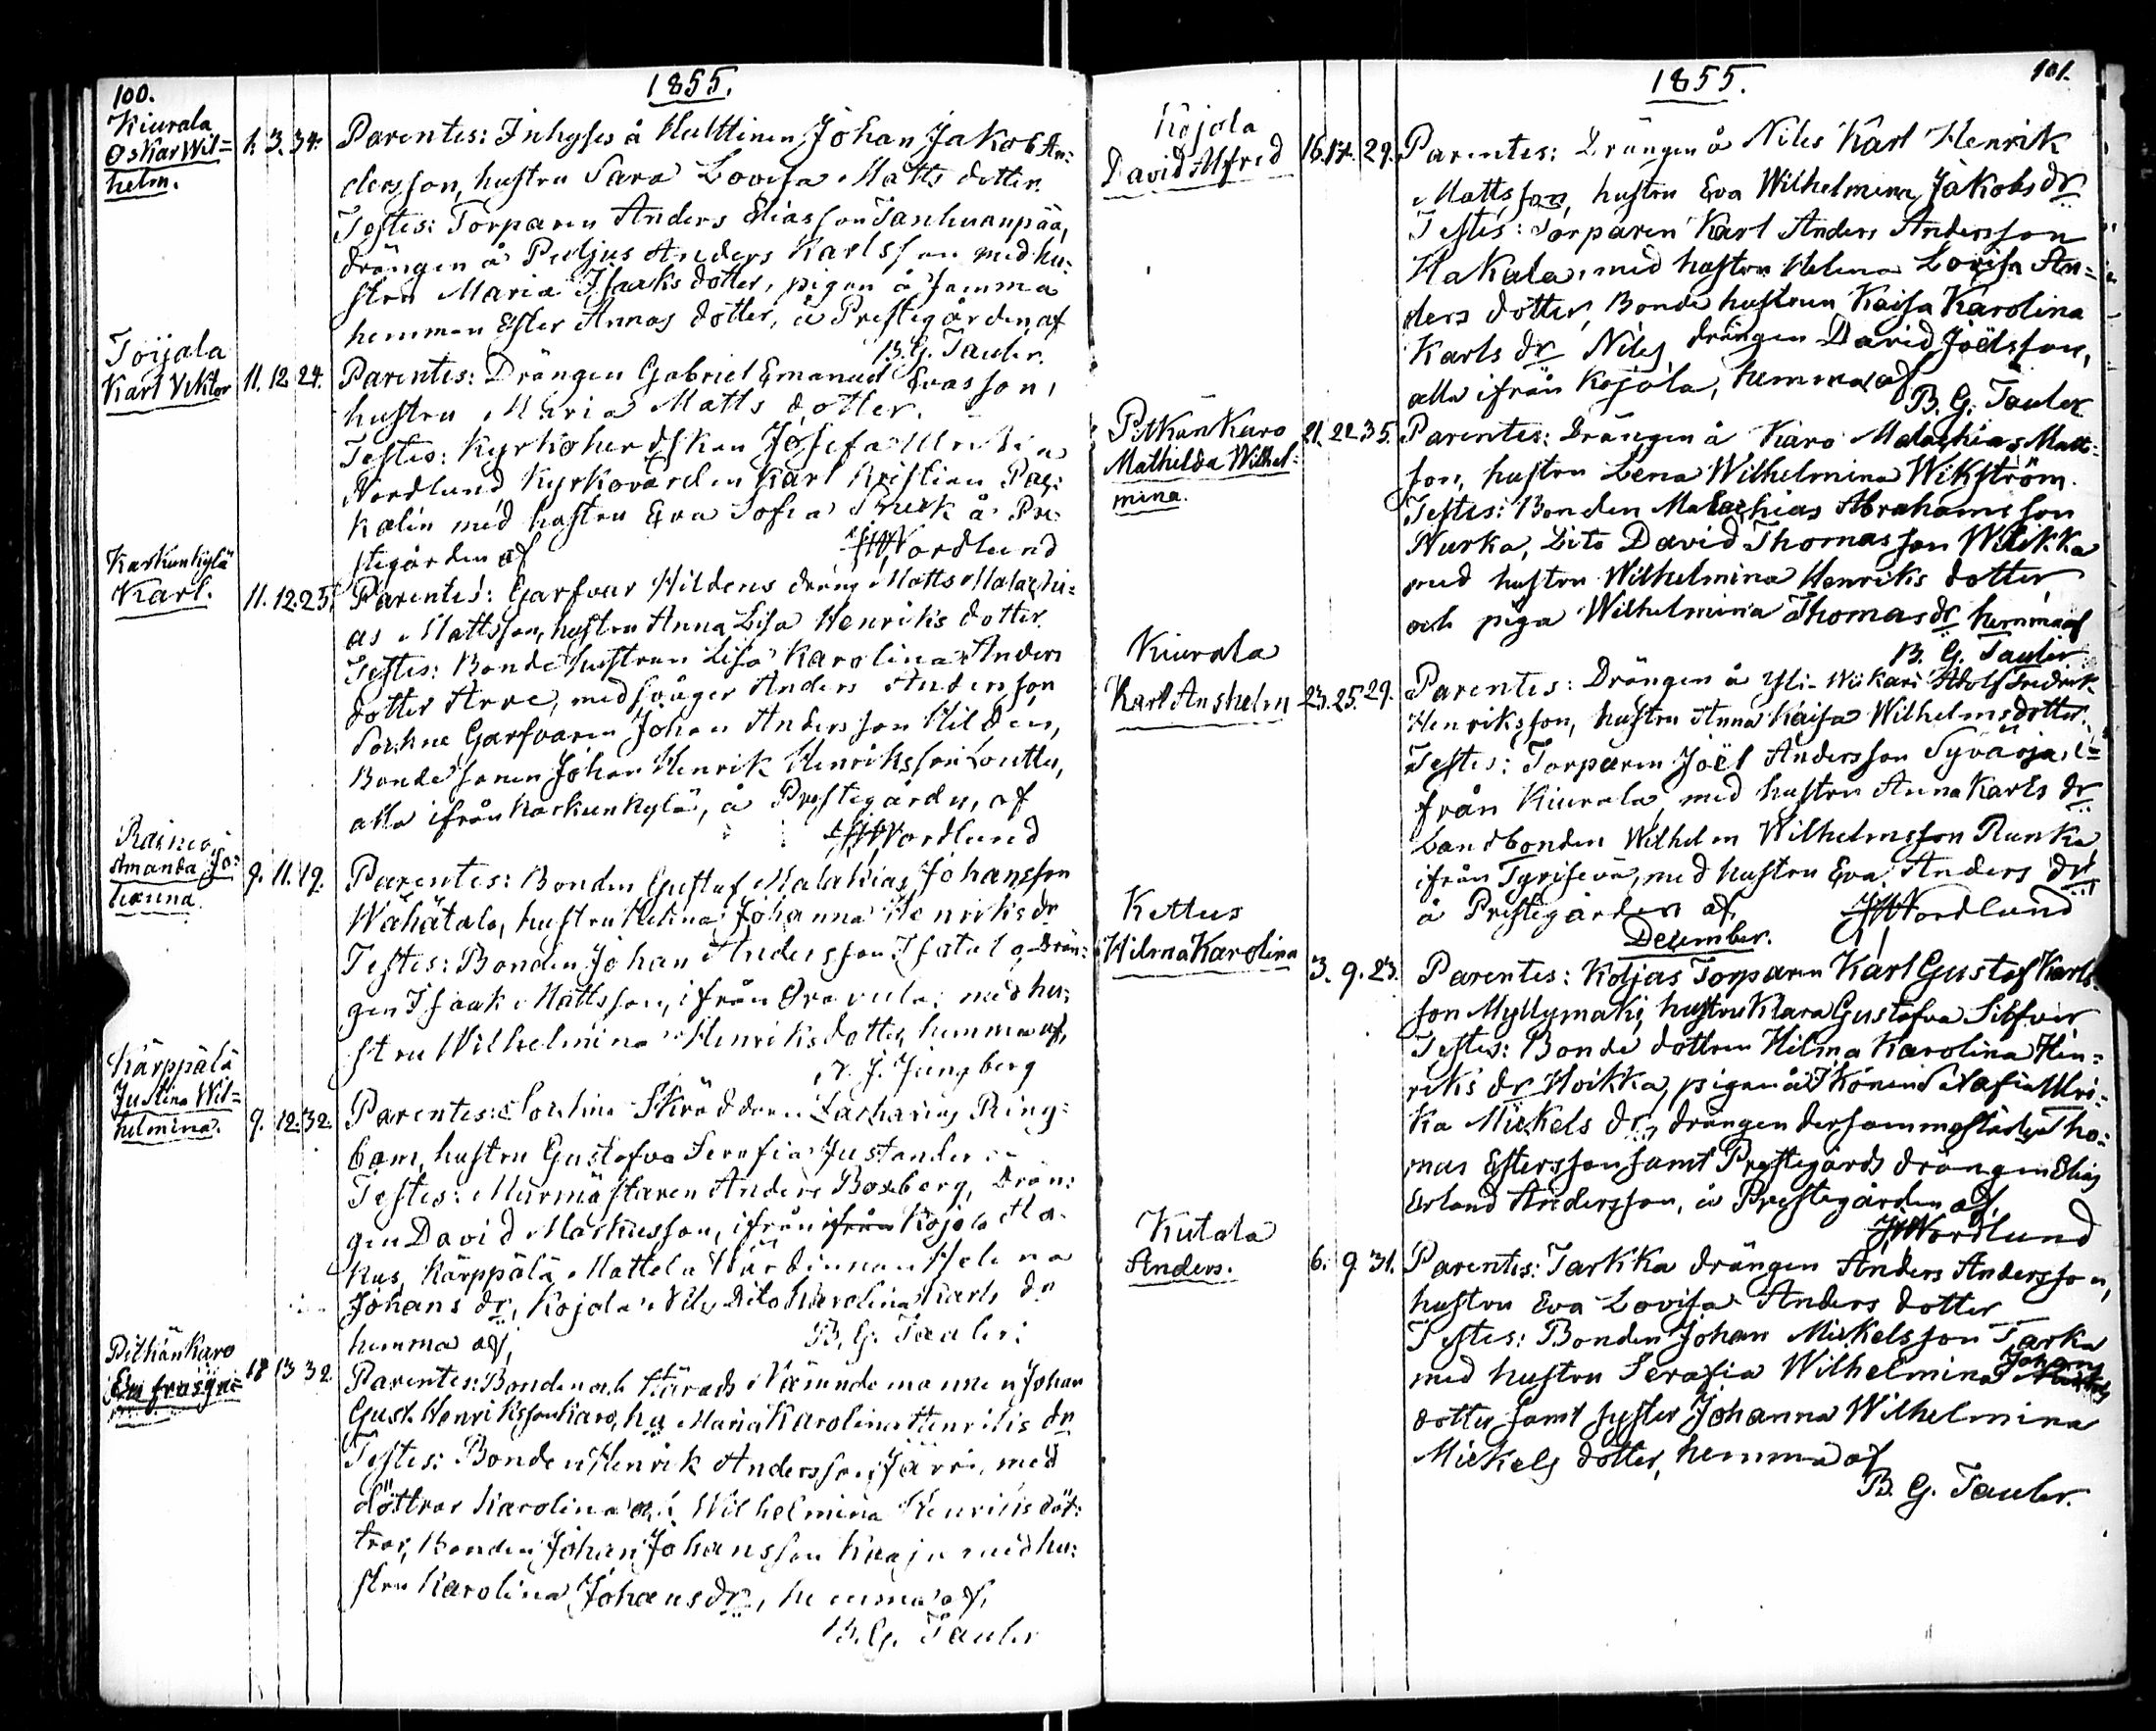 100.
1855.
Kiurala
Oskar Wil=
helm.
1. 3. 34.
Parentes: Inhyses å Hulttinen Johan Jakob An:
dersson, hustru Sara Lovisa Matts dotter.
Testes: Torparen Anders Eliasson Tanhuanpää,
drängen å Peltjus Anders Karlsson med hu:
stru Maria Isaks dotter, pigan å samma
hemman Ester Annas dotter, å Prestegården, af
B. G. Tauler.
Toijala
Karl Viktor
11. 12. 24.
Parentes: Drängen Gabriel Emanuel Evasson,
hustru Maria Matts dotter.
Testes: Kyrkoherdskan Josefa Ulrika
Nordlund Kyrkovärden Karl Kristian Pac:
kalén med hustru Eva Sofia å Pre:
stegården af
Nordlund
Karhunkylä
Karl.
11. 12. 25.
Parentes: Garfvar Hildens dräng Matts Malachi=
as Mattsson, hustru Anna Lisa Henriks dotter.
Testes: Bonde hustrun Lisa Karolina Anders
dotter Arve, med svåger Anders Andersson
Sockne Garfvaren Johan Andersson Hildén,
Bondesonen Johan Henrik Henriksson Louttu,
alla ifrån Karhunkylä, å Prestegården, af
Nordlund
Raineo,
Amanda Jo:
hanna.
9. 11. 19.
Parentes: Bonden Gustaf Malakias Johansson
Wähätalo, hustru Helina Johanna Henriks dr
Testes: Bonden Johan Andersson Isotalo, Drän:
gen Isaak Mattsson, ifrån Oravala, med hu:
stru Wilhelmina Henriksdotter, hemma af,
J. Ljungberg
Kärppälä
Justina Wil=
helmina.
9. 12. 32.
Parentes: Sockne Skräddaren Zacharias Ring:
bom, hustru Gustafva Serafia Justander
Testes: Murmästaren Anders Boxberg, Drän:
gen David Markusson, ifrån ifrån Kojola Ma
kus, Kärppälä Mattela Wärdinnan Helena
Johans dr, Kojola Niles Dito Karolina Karls dr
hemma af,
B. G. Tauler.
Pitkänkaro
Eufrosyne
12 13 32.
Parentes: Bonden och Härads Nämndemannen Johan
Gust. Henriksson Karo, hu Maria Karolina Henriks dr
Testes: Bonden Henrik Andersson Järvi, med
döttrar Karolina och Wilhelmina Henriks döt:
trar, Bonden Johan Johansson Knaju med hu:
stru Karolina Johans dr, hemma af,
B. G. Tauler
101.
1855.
Kojola
David Alfred
16. 17. 29.
Parentes: Drängen å Niles Karl Henrik
Mattsson, hustru Eva Wilhelmina Jakobs dr
Testes: Torparen Karl Anders Andersson
Hakala, med hustru Helena Lovisa An=
ders dotter, Bonde hustrun Kaisa Karolina
Karls dr Niles, drängen David Joëlsson,
alla ifrån Kojola, hemma af
B. G. Tauler
Pitkänkaro
Mathilda Wilhel=
mina.
21. 22. 35.
Parentes: Drängen å Karo Malachias Matt=
son, hustru Lena Wilhelmina Wikström.
Testes: Bonden Malachias Abrahamsson
Nurka, Dito David Thomasson Witikka
med hustru Wilhelmina Henriks dotter
och piga Wilhelmina Thomas dr hemma af
B. G. Tauler
Kiurala
Karl Anshelm
23. 25. 29.
Parentes: Drängen å Yli-Wiikari Adolf Fredrik
Henriksson, hustru Anna Kaisa Wilhelmsdotter.
Testes: Torparen Joël Andersson Syväoja, i=
från Kiurala, med hustru Anna Karls dr
Landbonden Wilhelm Wilhelmsson Runka
ifrån Tyrisevä, med hustru Eva Anders dr
å Prestegården af
Nordlund
December.
Kettus
Hilma Karolina
3. 9. 23.
Parentes: Koljas Torparen Karl Gustaf Karls=
son Myllymäki, hustru Klara Gustafva Silfver
Testes: Bonde dottren Hilma Karolina Hen=
riks dr Hoikka, pigan å Ikönen Serafia Ulri=
ka Mickels dr, drängen dersammastädes Tho:
mas Estersson samt Prestegårds drängen Elias
Erland Andersson, å Prestegården af
Nordlund
Kutala
Anders.
6. 9. 31.
Parentes: Tarkka drängen Anders Andersson,
hustru Eva Lovisa Anders dotter
Testes: Bonden Johan Mickelsson Tarka
med hustru Serafia Wilhelmina Johans
dotter samt syster Johanna Wilhelmina
Mickels dotter, hemma af
B. G. Tauler.